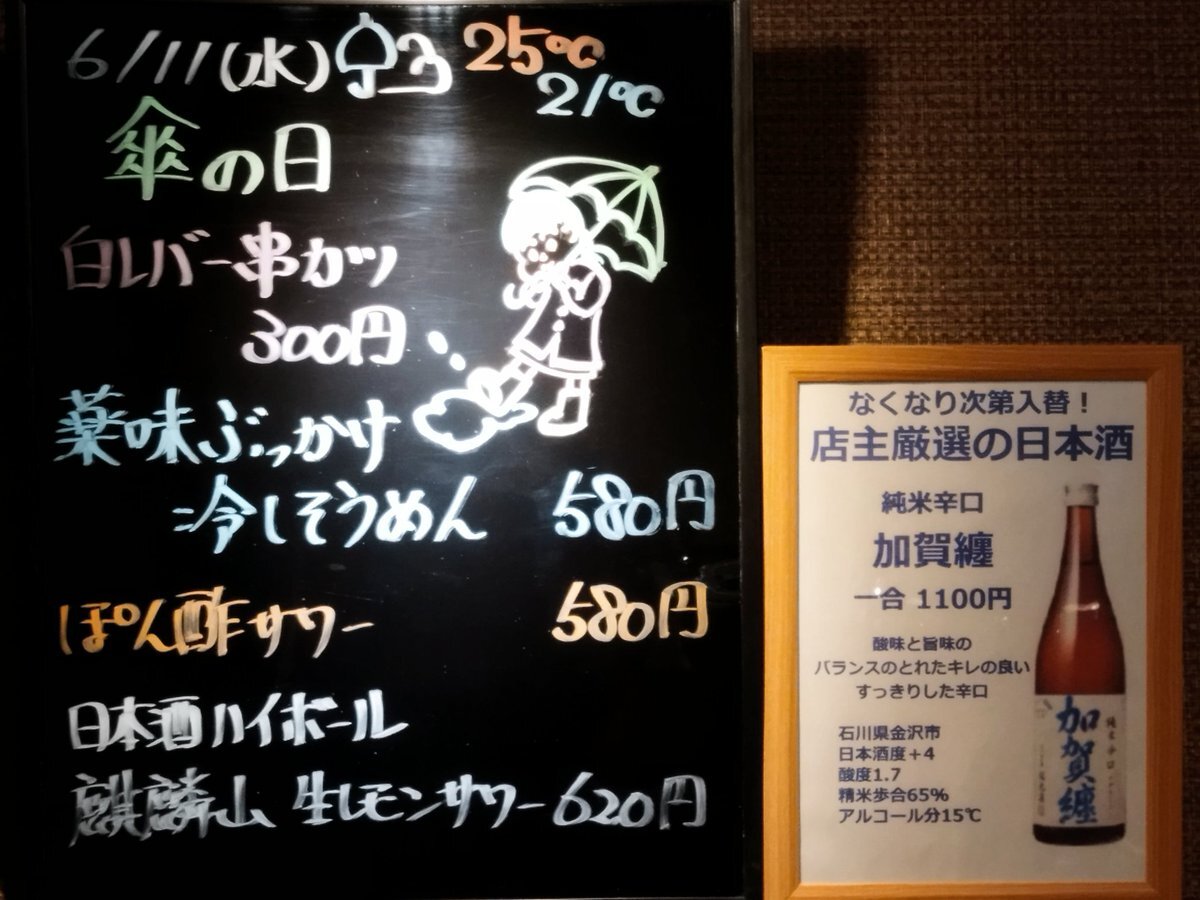 6/11(水) 25℃
21℃
傘の日
白レバー串カツ
300円
薬味ぶっかけ
冷しそうめん 580円
ぽん酢サワー 580円
日本酒ハイボール
麒麟山 生レモンサワー 620円
なくなり次第入替！
店主厳選の日本酒
純米辛口
加賀纏
一合 1100円
酸味と旨味の
バランスのとれたキレの良い
すっきりした辛口
石川県金沢市
日本酒度＋4
酸度1.7
精米歩合65%
アルコール分15℃
加賀纏
純米辛口